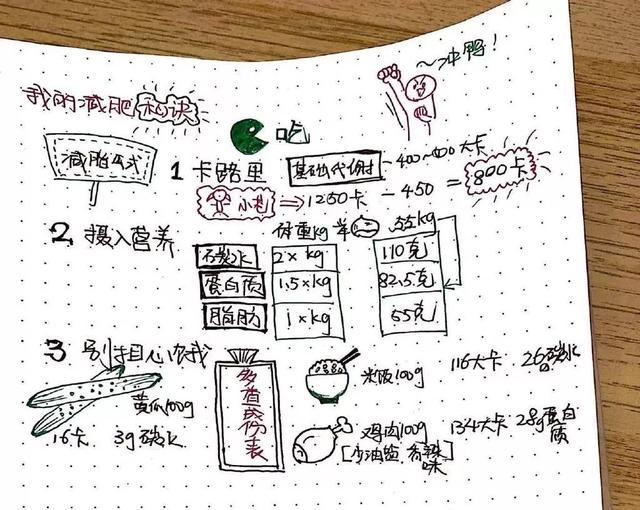 ~冲鸭!
我的减肥秘诀
吃
减脂公式
1 卡路里 基础代谢 -400~400大卡
小芒 ⇒ 1250卡 - 450 = 800卡
2. 摄入营养 体重kg 55kg
碳水 2×kg 110克
蛋白质 1.5×kg 82.5克
脂肪 1×kg 55克
3 别担心有我
多查成份表
米饭100g 116大卡 26g碳水
黄瓜100g
16卡 3g碳水
鸡肉100g 134大卡 28g蛋白质
[少油盐 香辣味]